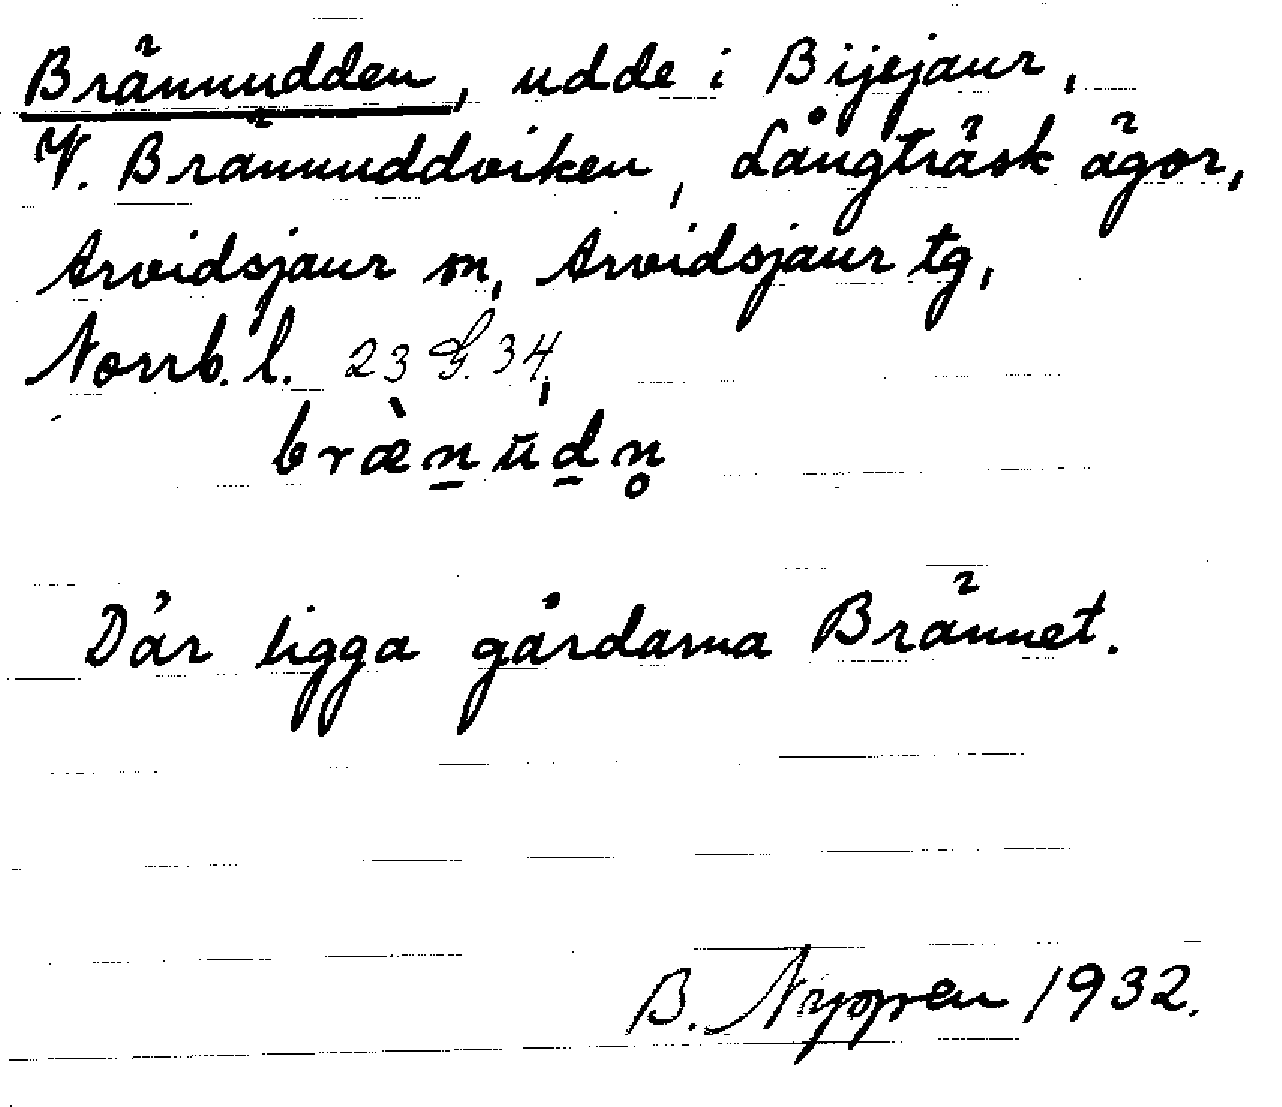 Brännudden, udde i Bijejaur,
V. Brännuddviken, Långträsk ägor,
Arvidsjaur sn, Arvidsjaur tg,
Norrb. l. 23 G. 34,
bræ̀n̠ūd̠n̥
Där ligga gårdarna Brännet.
B. Nygren 1932.